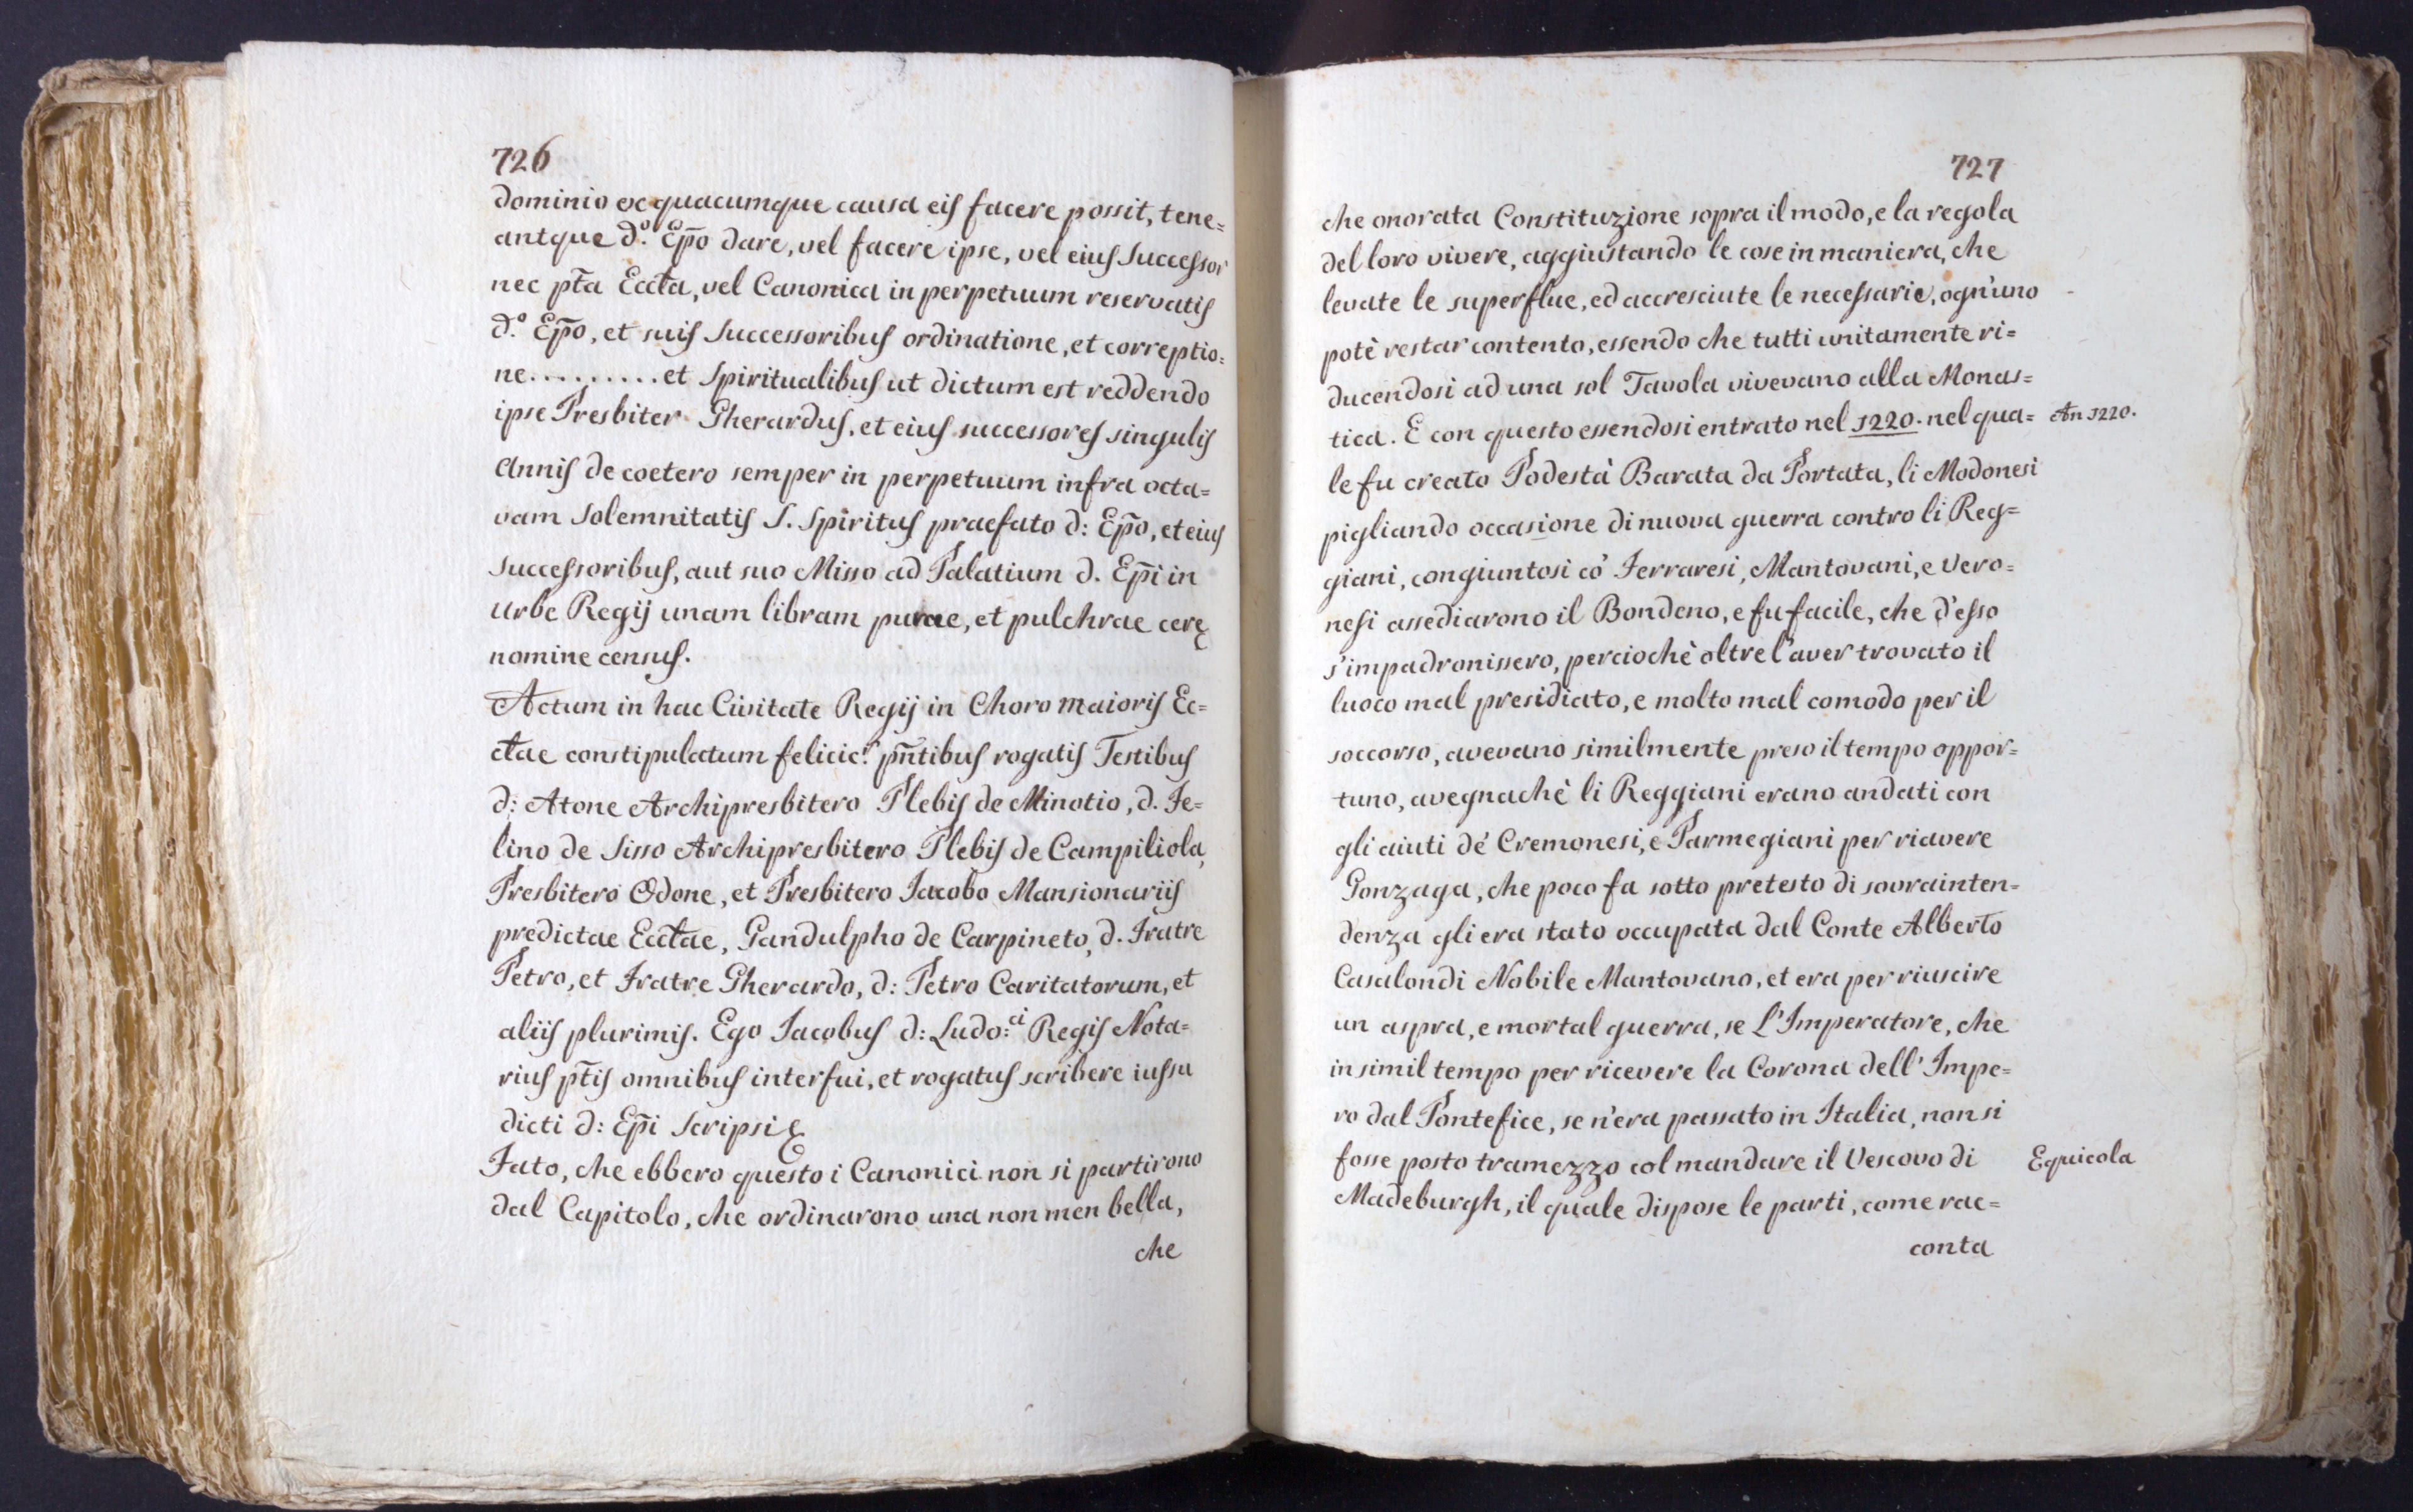 726
dominio ex quacumque causa eis facere possit, tene=
antque d.º Ep̄o dare, vel facere ipse, vel eius Successor
nec pt̄a Eccl̄a, vel Canonica in perpetuum reservatis
d.º Ep̄o, et suis Successoribus ordinatione, et correptio=
ne.........et Spiritualibus ut dictum est reddendo
ipse Presbiter Gherardus, et eius successores singulis
Annis de coetero semper in perpetuum infra octa=
vam Solemnitatis S. Spiritus praefato d: Ep̄o, et eius
Successoribus, aut suo Misso ad Palatium d. Ep̄i in
Urbe Regij unam libram purae, et pulchrae cerę
nomine census.
Actum in hac Civitate Regij in Choro maioris Ec=
cl̄ae constipulatum felicic.r pn̄tibus rogatis Testibus
d: Atone Archipresbitero Plebis de Minotio, d. Fe=
lino de Sisso Archipresbitero Plebis de Campiliola,
Presbitero Odone, et Presbitero Iacobo Mansionariis
predictae Eccl̄ae, Gandulpho de Carpineto, d. Fratre
Petro, et Fratre Gherardo, d: Petro Caritatorum, et
aliis plurimis. Ego Iacobus d: Ludo:ci Regis Nota=
rius pt̄is omnibus interfui, et rogatus scribere iussu
dicti d: Ep̄i Scripsi
Fato, che ebbero questo i Canonici non si partirono
dal Capitolo, che ordinarono una non men bella,
che
727
che onorata Constituzione sopra il modo, e la regola
del loro vivere, aggiustando le cose in maniera, che
levate le superflue, ed accresciute le necessarie, ogn'uno
potè restar contento, essendo che tutti unitamente ri=
ducendosi ad una sol Tavola vivevano alla Monas=
tica. E con questo essendosi entrato nel 1220. nel qua=
An 1220.
le fu creato Podestà Barata da Portata, li Modonesi
pigliando occasione di nuova guerra contro li Reg=
giani, congiuntosi co' Ferraresi, Mantovani, e Vero=
nesi assediarono il Bondeno, e fu facile, che d'esso
s'impadronissero, perciochè oltre l'aver trovato il
luoco mal presidiato, e molto mal comodo per il
soccorso, avevano similmente preso il tempo oppor=
tuno, avegnachè li Reggiani erano andati con
gli aiuti de' Cremonesi, e Parmegiani per riavere
Gonzaga, che poco fa sotto pretesto di sovrainten=
denza gli era stato occupata dal Conte Alberto
Casalondi Nobile Mantovano, et era per riuscire
un aspra, e mortal guerra, se L'Imperatore, che
in simil tempo per ricevere la Corona dell' Impe=
ro dal Pontefice, se n'era passato in Italia, non si
fosse posto tramezzo col mandare il Vescovo di
Equicola
Madeburgh, il quale dispose le parti, come rac=
conta